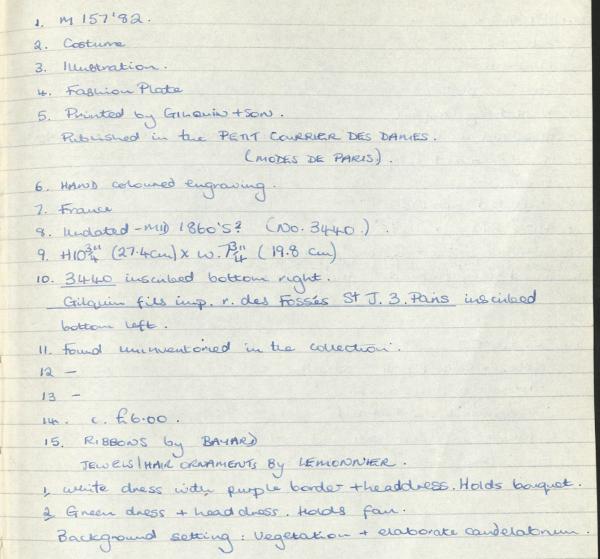 1. M 157'82.
2. Costume
3. Illustration.
4. Fashion Plate
5. Printed by GILQUIN + SON.
Published in the PETIT COURRIER DES DAMES.
(MODES DE PARIS).
6. HAND coloured engraving.
7. France
8. Undated - MID 1860'S? (No. 3440.)
9. H10¾" (27.4cm) x W. 7¾" (19.8 cm)
10. 3440 inscribed bottom right.
Gilquin fils imp. r. des Fossés St J. 3. Paris inscribed
bottom left.
11. Found uninventoried in the collection.
12 -
13 -
14. c. £6.00.
15. RIBBONS by BAYARD
JEWELS/HAIR ORNAMENTS BY LEMONNIER.
1. White dress with purple border + headdress. Holds bouquet.
2. Green dress + headdress. Holds fan.
Background setting: Vegetation + elaborate candelabrum.